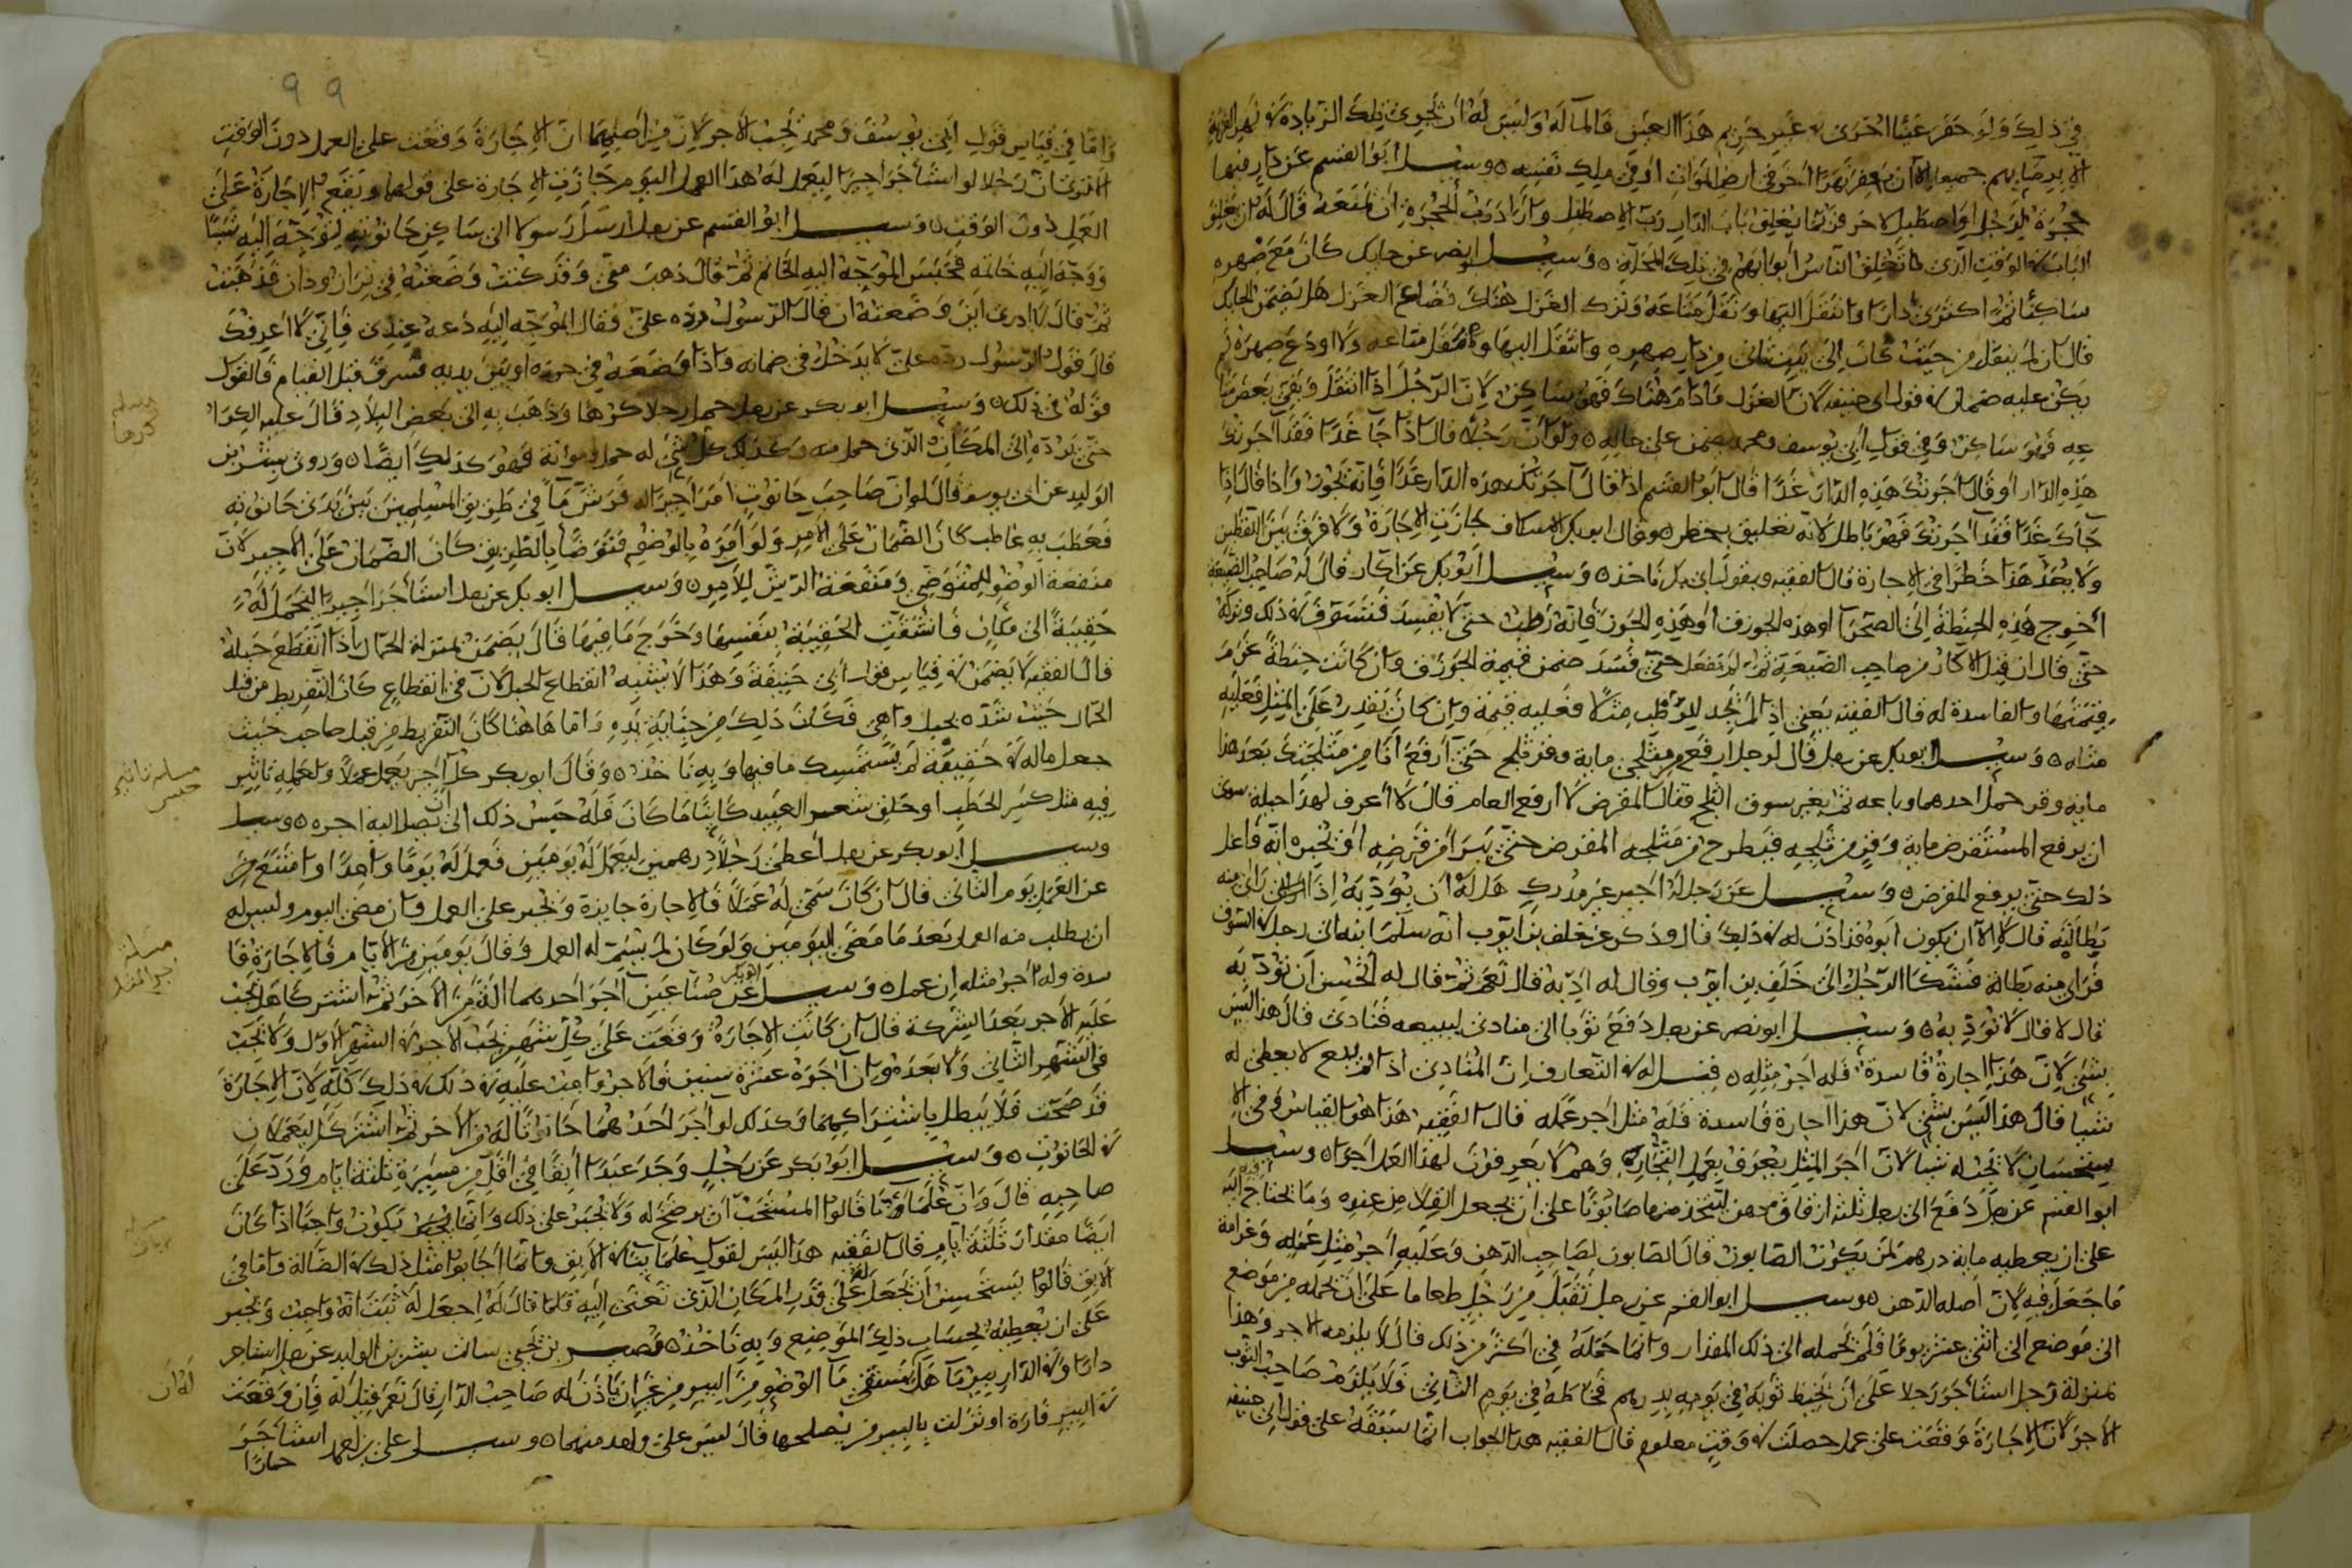 في ذلك ولو حفر عينا اخرى في غير حريم هذا العين فالما له وليس له ان يجرى تلك الزيادة في نهر القرية
الا برضاهم جميعا الا ان يحفر نهرا اخر في ارض الموات او في ملك نفسه وسيل ابو القسم عن دار فيها
حجرة لرجل واصطبل لاخر فربما يغلق باب الدار رب الاصطبل واراد رب الحجرة ان يمنعه قال له ان يغلق
الباب في الوقت الذى يغلق الناس ابوابهم في تلك المحلة وسيل ابو نصر عن حايك كان مع صهره
ساكنا ثم اكترى دارا وانتقل اليها ونقل متاعه وترك الغزل هناك فضاع الغزل هل يضمن الحايك
قال ان لم ينقل من حيث كان الى بيت ثانى من دار صهره وانتقل اليها ونقل متاعه ولا اودع صهره لم
يكن عليه ضمان في قول ابى حنيفة لان الغزل مادام هناك فهو ساكن لان الرجل اذا انتقل وبقى بعض متا
عه فهو ساكن وفي قول ابى يوسف ومحمد يضمن على حاله ولو ان رجلا قال اذا جا غدا فقد اجرتك
هذه الدار او قال اجرتك هذه الدار غدا قال ابو القسم اذا قال آجرتك هذه الدار غدا فانه يجوز واذا قال اذا
جآك غدا فقد آجرتك فهو باطل لانه تعليق بخطر وقال ابو بكر الاسكاف جازت الاجارة ولا فرق بين اللفظين
ولا يعد هذا خطرا في الاجارة قال الفقيه وبقول ابى بكر ناخذ وسيل ابو بكر عن اكار قال له صاحب الضيعة
اخرج هذه الحنطة الى الصحرا او هذه الجوزق او هذه الجوز فانه رطب حتى لا يفسد فسوف في ذلك وتركه
حتى قال ان قبل الاكار من صاحب الضيعة ثم لم يفعل حتى فسد ضمن قيمة الجوزق وان كانت حنطة غرم
قيمتها والفاسدة له قال الفقيه يعنى اذا لم يجد للرطب مثلا فعليه قيمة وان كان يقدر على المثل فعليه
مثله وسيل ابو بكر عن رجل قال لرجل ارفع من مثلجى ماية وقر ثلج حتى ارفع انا من مثلجتك بعد هذا
ماية وقر حمل احدهما وباعه ثم تغير سوق الثلج فقال المقرض لا ارفع العام قال لا اعرف لهذا حيلة سوى
ان يرفع المستقرض ماية وقر من ثلجه فيطرح من مثلجه المقرض حتى يبرا من قرضه او يخبره انه فاعل
ذلك حتى يرفع المقرض وسيل عن رجل له اجير غير مدرك هل له ان يؤدبه اذا راى منه
بطالة قال لا الا ان يكون ابوه قد اذن له في ذلك قال وذكر عن خلف بن ايوب انه سلم ابنه الى رجل في السوق
فراى منه بطالة فشكا الرجل الى خلف بن ايوب وقال له ادبه قال نعم ثم قال له اتحسن ان تؤدبه
قال لا قال لا تؤدبه وسيل ابو نصر عن رجل دفع ثوبا الى منادى ليبيعه فنادى قال هذا ليس
بشى لان هذا اجارة فاسدة فله اجر مثله فقيل له في التعارف ان المنادى اذا لم يبع لا يعطى له
شيا قال هذا ليس بشى لان هذا اجارة فاسدة فله مثل اجر عمله قال الفقيه هذا هو القياس وفى الا
ستحسان لا يجب له شيا لان اجر المثل يعرف بعمل التجار وهم لا يعرفون لهذا العمل اجرا وسيل
ابو القسم عن رجل دفع الى رجل ثلثة ازقاق دهن ليتخذ منها صابونا على ان يجعل القلا من عنده وما يحتاج اليه
على ان يعطيه ماية درهم لمن يكون الصابون قال الصابون لصاحب الدهن وعليه اجر مثل عمله وغرامة
ما جعل فيه لان اصله الدهن وسيل ابو القسم عن رجل تقبل من رجل طعاما على ان يحمله من موضع
الى موضع الى اثنى عشر يوما فلم يحمله الى ذلك المقدار وانما حمله في اكثر من ذلك قال لا يلزمه الاجر وهذا
بمنزلة رجل استأجر رجلا على ان يخيط ثوبه في يومه بدرهم فخاطه في يوم الثانى فلا يلزم صاحب الثوب
الاجر لان الاجارة وقعت على عمل حصلت في وقت معلوم قال الفقيه هذا الجواب انما يتفقه على قول ابى حنيفة
واما في قياس قول ابى يوسف ومحمد يجب الاجر لان من اصلهما ان الاجارة وقعت على العمل دون الوقت
الا ترى ان رجلا لو استأجر اجيرا ليعمل له هذا العمل اليوم جازت الاجارة على قولهما ويقع الاجارة على
العمل دون الوقت وسيل ابو القسم عن رجل ارسل رسولا الى ساكن حانوته ليوجه اليه شيئا
ووجه اليه خاتمه فحبس الموجه اليه الخاتم ثم قال ذهب منى وقد كنت وضعته في
ثم قال لا ادرى اين وضعته ان قال الرسول رده على وقال الموجه اليه دعه عندى فانى لا اعرفك
قال قول الرسول رده على لا يدخل في ضمانه واذا وضعه في حرزه او بين يديه فسرق قبل القيام فالقول
قوله في ذلك وسيل ابو بكر عن رجل حمل رجلا كرها وذهب به الى بعض البلاد قال عليه الكرا
حتى يرده الى المكان الذى حمل منه وكذلك كل شى له حمل ومؤنة فهو كذلك ايضا وروى بشر بن
الوليد عن ابى يوسف قال لو ان صاحب حانوت امر اجيرا له فرش ما في طريق المسلمين بين يدى حانوته
فعطب به عاطب كان الضمان على الآمر ولو امره بالوضو فتوضا بالطريق كان الضمان على الاجير لان
منفعة الوضو للمتوضى ومنفعة الرش للآمر وسيل ابو بكر عن رجل استأجر اجيرا ليحمل له
حقيبة الى مكان فانشقت الحقيبة بنفسها وخرج ما فيها قال يضمن بمنزلة الحمال اذا انقطع حبله
قال الفقيه لا يضمن في قياس قول ابى حنيفة وهذا لا يشبه انقطاع الحبل لان في انقطاع كان التفريط من قبل
الحمال حيث شده بحبل واهى فكان ذلك من جناية يده واما هاهنا كان التفريط من قبل صاحب حيث
جعل ماله في حقيبة لم تستمسك ما فيها وبه ناخذ وقال ابو بكر كل اجير يعمل عملا ولعمله تاثير
فيه مثل كسر الحطب او حلق شعر العبيد كاينا ما كان فله حبس ذلك الى ان تصل اليه اجره
وسيل ابو بكر عن رجل اعطى رجلا درهمين ليعمل له يومين فعمل له يوما واحدا وامتنع
عن العمل يوم الثانى قال ان كان سمى له عملا فالاجارة جايزة ويجبر على العمل وان مضى اليوم وليس له
ان يطلب منه العمل بعد ما مضى اليومين ولو كان لم يسم له العمل وقال يومين من الايام فالاجارة فا
سدة وله اجر مثله ان عمل وسيل ابو بكر عن صناعين آجر احدهما آلة من الآخر ثم اشتركا هل يجب
عليه الاجر بعد الشركة قال ان كانت الاجارة وقعت على كل شهر يجب الاجر في الشهر الاول ولا يجب
في الشهر الثانى ولا بعده وان آجره عشرة سنين فالاجر واجب عليه في ذلك كله لان الاجارة
قد صحت فلا يبطل باشتراكهما وكذلك لو اجر احدهما حانوتا له من الآخر ثم اشتركا ليعملان
في الحانوت وسيل ابو بكر عن رجل وجد عبدا ابقا في اقل من مسيرة ثلثة ايام ورد على
صاحبه قال وان علماؤنا قالوا المستحب ان يرضخ له ولا يجبر على ذلك وانما يكون واجبا اذا كان
ايضا مقدار ثلثة ايام قال الفقيه هذا ليس لقول علمائنا في الابق وانما اجابوا مثل ذلك في الضالة واما في
الابق قالوا يستحسن ان يجعل له على قدر المكان الذى تعنى اليه فلما قال له اجعل له ثبت انه واجب ويجبر
على ان يعطيه بحساب ذلك الموضع وبه ناخذ نصير بن يحيى سالت بشر بن الوليد عن رجل استاجر
دارا وفي الدار بير ما هل يستقى ما الوضو من البير من غير ان ياذن له صاحب الدار قال نعم قيل له فان وقعت
في البير فارة او نزلت بالبير من يصلحها قال ليس على واحد منهما وسيل على بن احمد استأجر
حمارا